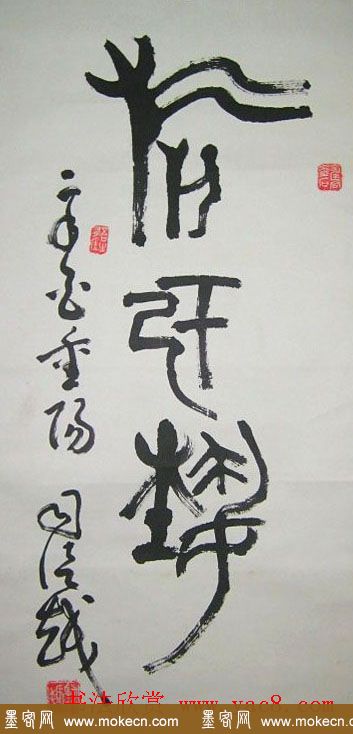 斿于埶
辛酉重陽 司徒越
书法欣赏 www.yac8.com
墨客网 www.mokecn.com 墨客网 www.mokecn.com